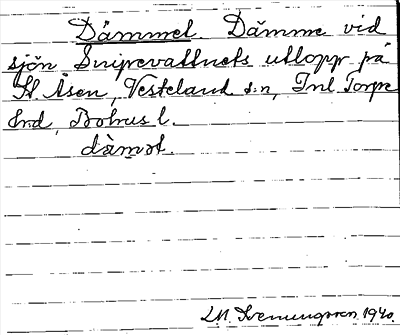 Dämmet. Dämme vid
sjön Snipevattnets utlopp på
St Åsen, Vesteland s:n, Inl Torpe
hrd, Bohus l.
dàmət.
LM. Svenungsson 1940.